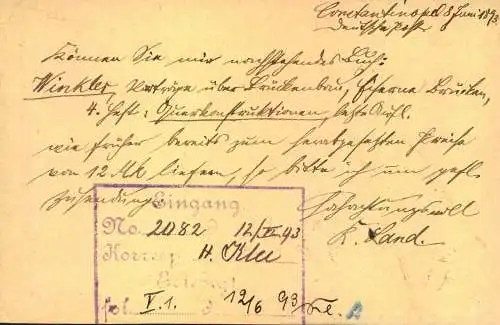 Constantinopel 8 Juni 1893.
Deutsche Post
Können Sie mir nachstehendes Buch:
Winkler, Vorträge über Brückenbau, Eiserne Brücken,
4. Heft: Querkonstruktionen beste Aufl.
wie früher bereits zum herabgesetzten Preise
von 12 Mk liefern, so bitte ich um gefl.
Zusendung.
Hochachtungsvoll
K. Land.
Eingang
No. 2082 12/VI 93
Korresp. H. Klee
Erledigt
fol. V.1. 12/6 93